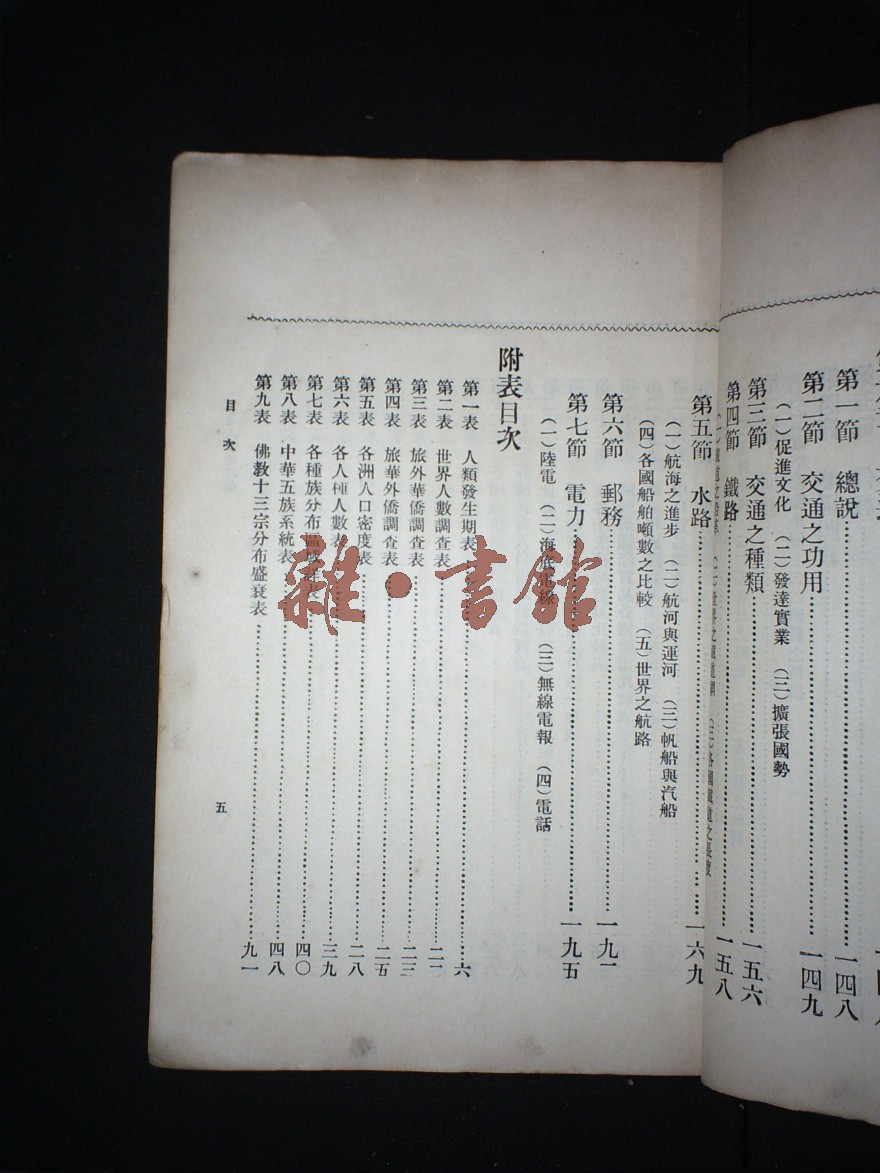 第一節　總說……一四八
第二節　交通之功用……一四九
（一）促進文化　（二）發達實業　（三）擴張國勢
第三節　交通之種類……一五六
第四節　鐵路……一五八
第五節　水路……一六九
（一）航海之進步　（二）航河與運河　（三）帆船與汽船
（四）各國船舶噸數之比較　（五）世界之航路
第六節　郵務……一九二
第七節　電力……一九五
（一）陸電　（二）海底電線　（三）無線電報　（四）電話
附表目次
第一表　人類發生期表……六
第二表　世界人數調查表
第三表　旅外華僑調查表……二三
第四表　旅華外僑調查表……二五
第五表　各洲人口密度表……二八
第六表　各人種人數表……三九
第七表　各種族分布區域詳表……四〇
第八表　中華五族系統表……四八
第九表　佛教十三宗分布盛衰表……九一
目次
五
雜·書館